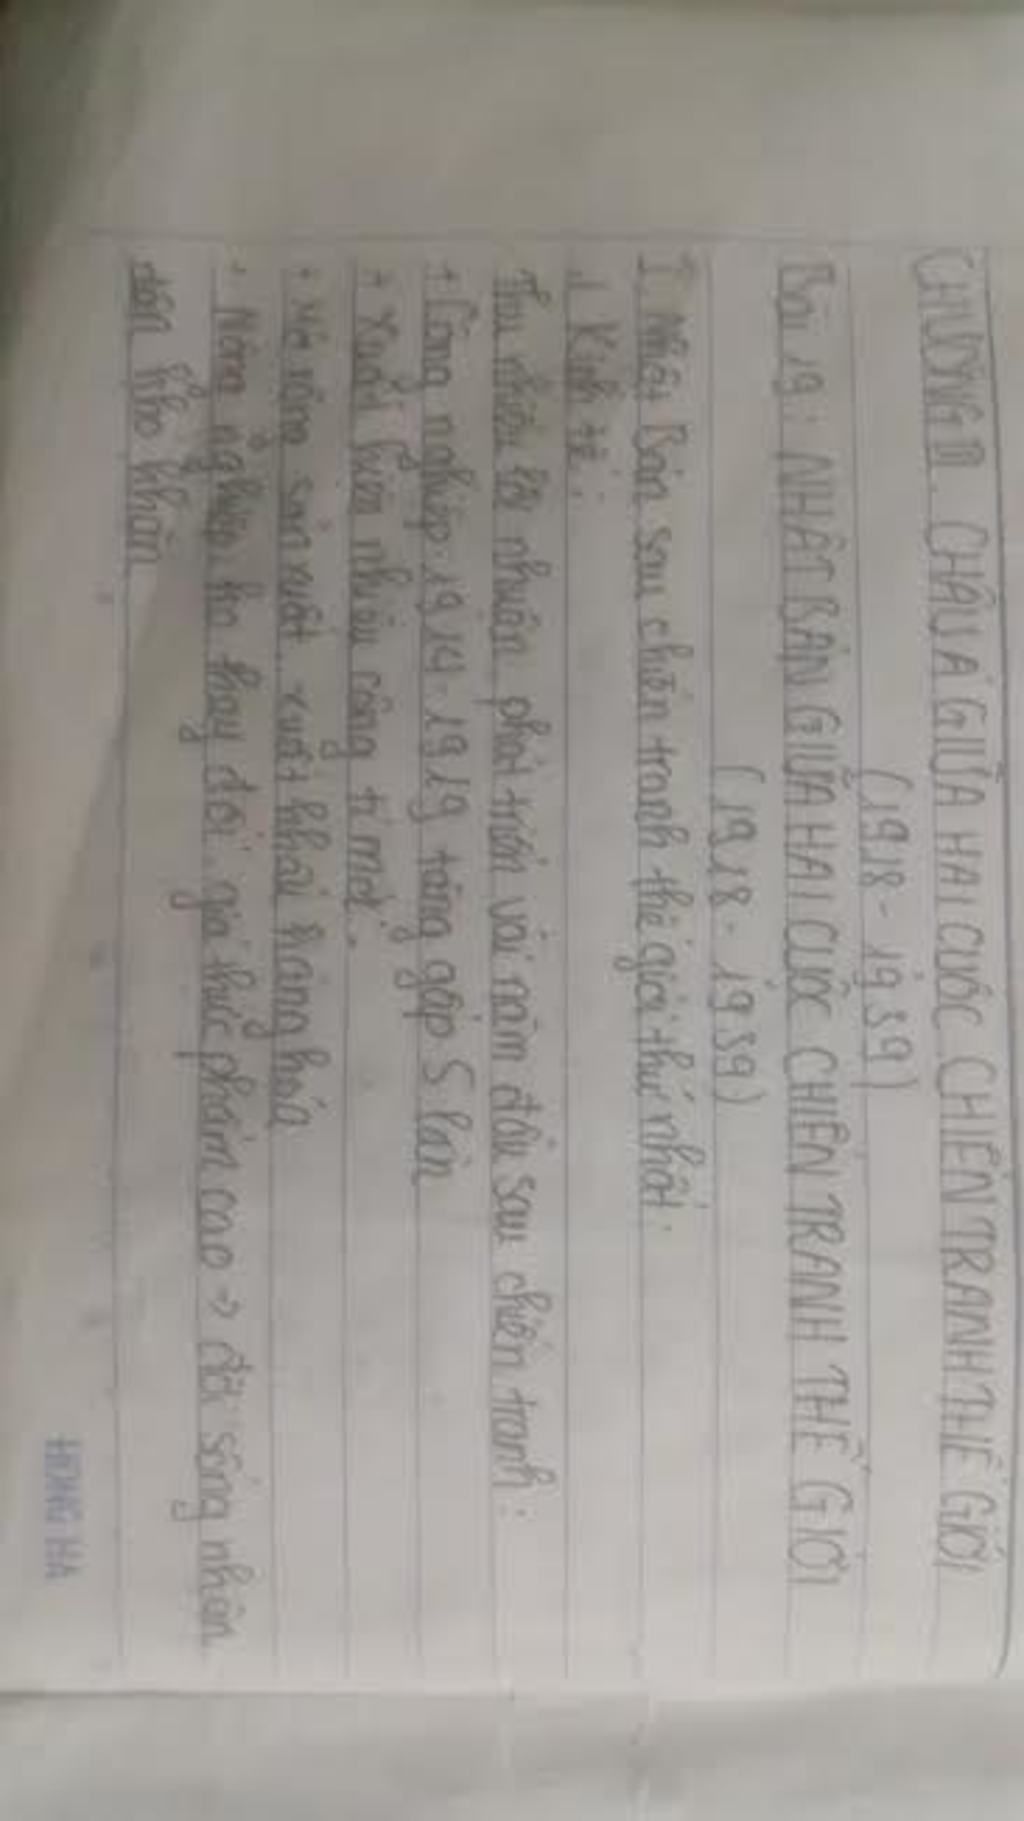 CHƯƠNG III. CHÂU Á GIỮA HAI CUỘC CHIẾN TRANH THẾ GIỚI
(1918 - 1939)
Bài 19: NHẬT BẢN GIỮA HAI CUỘC CHIẾN TRANH THẾ GIỚI
(1918 - 1939)
I Nhật Bản sau chiến tranh thế giới thứ nhất.
1 Kinh tế:
Thu nhiều lợi nhuận phát triển vài năm đầu sau chiến tranh:
+ Công nghiệp: 1914-1919 tăng gấp 5 lần
+ Xuất hiện nhiều công ti mới.
+ Mở rộng sản xuất, xuất khẩu hàng hoá
- Nông nghiệp: ko thay đổi, giá thực phẩm cao → đời sống nhân
dân khó khăn
HONG HA